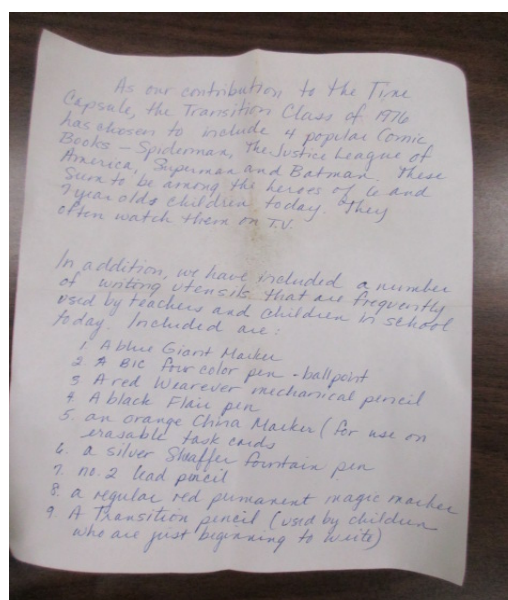 As our contribution to the Time
Capsule, the Transition Class of 1976
has chosen to include 4 popular Comic
Books – Spiderman, The Justice League of
America, Superman and Batman. These
seem to be among the heroes of 6 and
7 year olds children today. They
often watch them on T.V.
In addition, we have included a number
of writing utensils that are frequently
used by teachers and children in school
today. Included are:
1. A blue Giant Marker
2. A BIC four color pen - ballpoint
3. A red Wearever mechanical pencil
4. A black Flair pen
5. an orange China Marker (for use on
erasable task cards
6. a silver Sheaffer fountain pen
7. no. 2 lead pencil
8. a regular red permanent magic marker
9. A Transition pencil (used by children
who are just beginning to write)